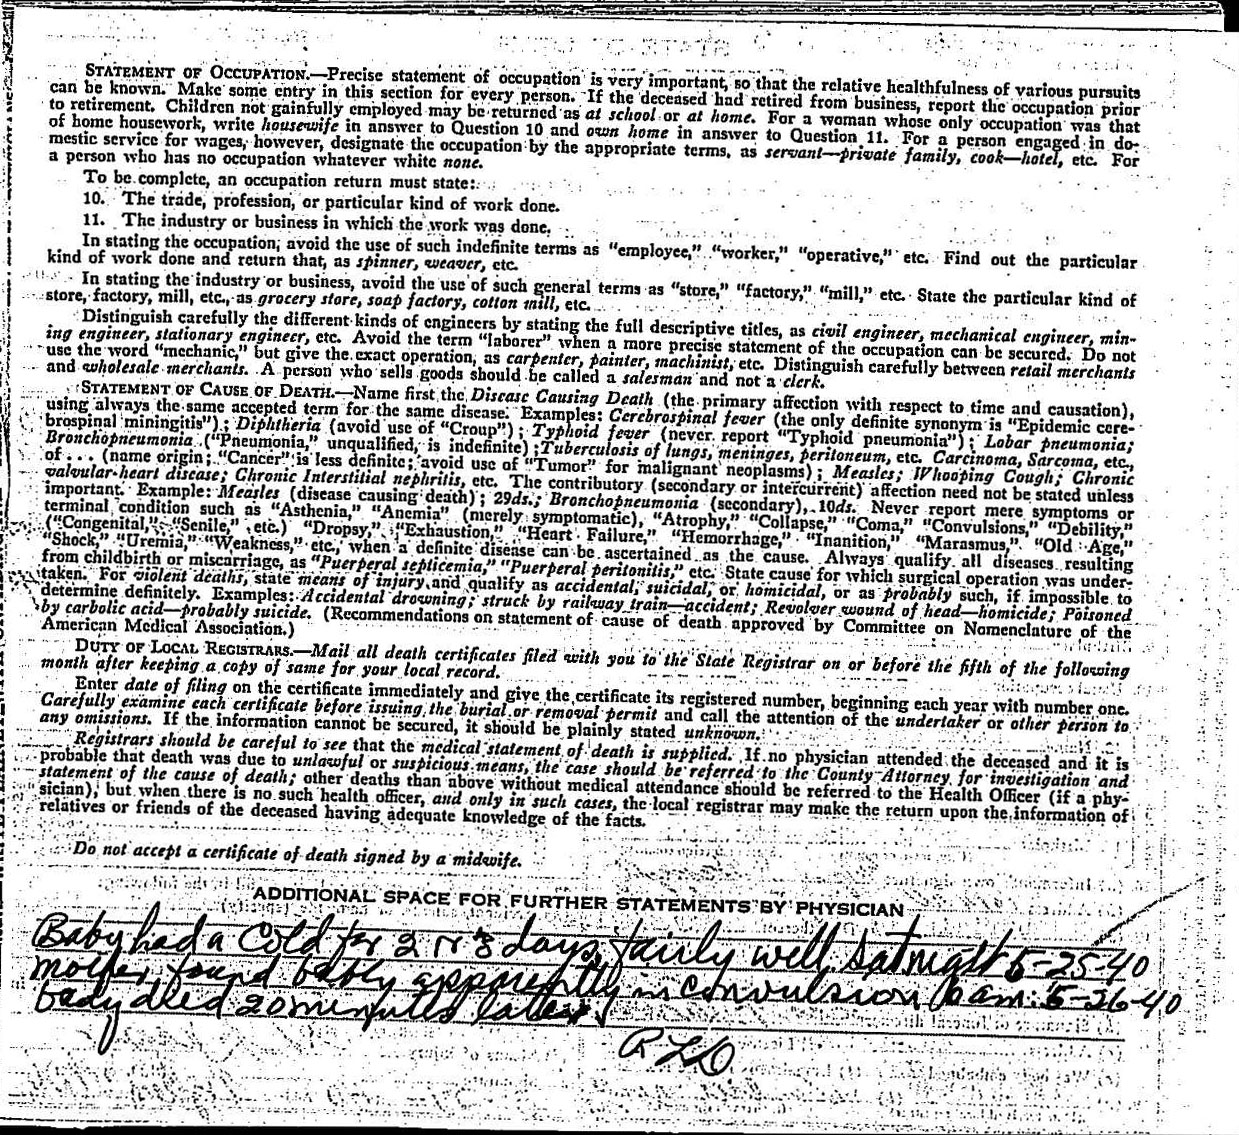 STATEMENT OF OCCUPATION.—Precise statement of occupation is very important, so that the relative healthfulness of various pursuits
can be known. Make some entry in this section for every person. If the deceased had retired from business, report the occupation prior
to retirement. Children not gainfully employed may be returned as at school or at home. For a woman whose only occupation was that
of home housework, write housewife in answer to Question 10 and own home in answer to Question 11. For a person engaged in do-
mestic service for wages, however, designate the occupation by the appropriate terms, as servant—private family, cook—hotel, etc. For
a person who has no occupation whatever white none.
To be complete, an occupation return must state:
10. The trade, profession, or particular kind of work done.
11. The industry or business in which the work was done.
In stating the occupation, avoid the use of such indefinite terms as "employee," "worker," "operative," etc. Find out the particular
kind of work done and return that, as spinner, weaver, etc.
In stating the industry or business, avoid the use of such general terms as "store," "factory," "mill," etc. State the particular kind of
store, factory, mill, etc., as grocery store, soap factory, cotton mill, etc.
Distinguish carefully the different kinds of engineers by stating the full descriptive titles, as civil engineer, mechanical engineer, min-
ing engineer, stationary engineer, etc. Avoid the term "laborer" when a more precise statement of the occupation can be secured. Do not
use the word "mechanic," but give the exact operation, as carpenter, painter, machinist, etc. Distinguish carefully between retail merchants
and wholesale merchants. A person who sells goods should be called a salesman and not a clerk.
STATEMENT OF CAUSE OF DEATH.—Name first the Disease Causing Death (the primary affection with respect to time and causation),
using always the same accepted term for the same disease. Examples: Cerebrospinal fever (the only definite synonym is "Epidemic cere-
brospinal miningitis"); Diphtheria (avoid use of "Croup"); Typhoid fever (never report "Typhoid pneumonia"); Lobar pneumonia;
Bronchopneumonia ("Pneumonia," unqualified, is indefinite); Tuberculosis of lungs, meninges, peritoneum, etc. Carcinoma, Sarcoma, etc.,
of . . . (name origin; "Cancer" is less definite; avoid use of "Tumor" for malignant neoplasms); Measles; Whooping Cough; Chronic
valvular heart disease; Chronic Interstitial nephritis, etc. The contributory (secondary or intercurrent) affection need not be stated unless
important. Example: Measles (disease causing death); 29ds.; Bronchopneumonia (secondary), 10ds. Never report mere symptoms or
terminal condition such as "Asthenia," "Anemia" (merely symptomatic), "Atrophy," "Collapse," "Coma," "Convulsions," "Debility,"
("Congenital," "Senile," etc.) "Dropsy," "Exhaustion," "Heart Failure," "Hemorrhage," "Inanition," "Marasmus," "Old Age,"
"Shock," "Uremia," "Weakness," etc., when a definite disease can be ascertained as the cause. Always qualify all diseases resulting
from childbirth or miscarriage, as "Puerperal septicemia," "Puerperal peritonitis," etc. State cause for which surgical operation was under-
taken. For violent deaths, state means of injury and qualify as accidental, suicidal, or homicidal, or as probably such, if impossible to
determine definitely. Examples: Accidental drowning; struck by railway train—accident; Revolver wound of head—homicide; Poisoned
by carbolic acid—probably suicide. (Recommendations on statement of cause of death approved by Committee on Nomenclature of the
American Medical Association.)
DUTY OF LOCAL REGISTRARS.—Mail all death certificates filed with you to the State Registrar on or before the fifth of the following
month after keeping a copy of same for your local record.
Enter date of filing on the certificate immediately and give the certificate its registered number, beginning each year with number one.
Carefully examine each certificate before issuing the burial or removal permit and call the attention of the undertaker or other person to
any omissions. If the information cannot be secured, it should be plainly stated unknown.
Registrars should be careful to see that the medical statement of death is supplied. If no physician attended the deceased and it is
probable that death was due to unlawful or suspicious means, the case should be referred to the County Attorney for investigation and
statement of the cause of death; other deaths than above without medical attendance should be referred to the Health Officer (if a phy-
sician), but when there is no such health officer, and only in such cases, the local registrar may make the return upon the information of
relatives or friends of the deceased having adequate knowledge of the facts.
Do not accept a certificate of death signed by a midwife.
ADDITIONAL SPACE FOR FURTHER STATEMENTS BY PHYSICIAN
Baby had a Cold for 2 or 3 days, fairly well Sat night 5-25-40
Mother found baby apparently in convulsion 6 am: 5-26-40
baby died 20 minutes later.
RLD